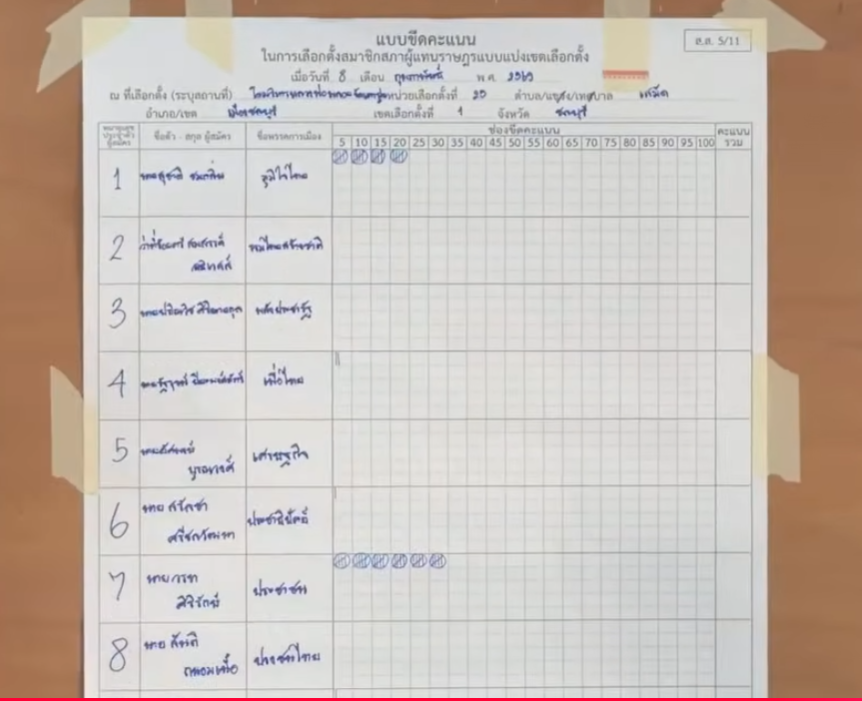 แบบขีดคะแนน
ส.ส. 5/11
ในการเลือกตั้งสมาชิกสภาผู้แทนราษฎรแบบแบ่งเขตเลือกตั้ง
เมื่อวันที่ 8 เดือน กุมภาพันธ์ พ.ศ. 2569
ณ ที่เลือกตั้ง (ระบุสถานที่) หน่วยเลือกตั้งที่ ตำบล/แขวง/เทศบาล เสม็ด
อำเภอ/เขต เมืองชลบุรี เขตเลือกตั้งที่ 1 จังหวัด ชลบุรี
หมายเลขประจำตัวผู้สมัคร ชื่อตัว - สกุล ผู้สมัคร ชื่อพรรคการเมือง ช่องขีดคะแนน คะแนนรวม
5 10 15 20 25 30 35 40 45 50 55 60 65 70 75 80 85 90 95 100
1 นายสุชาติ ชมกลิ่น ภูมิใจไทย
2 รวมไทยสร้างชาติ
3 พลังประชารัฐ
4 เพื่อไทย
5 เศรษฐกิจ
6 นาย ประชาธิปัตย์
7 นายวรท ศิริรักษ์ ประชาชน
8 นาย ถนอมเนื้อ ปวงชนไทย